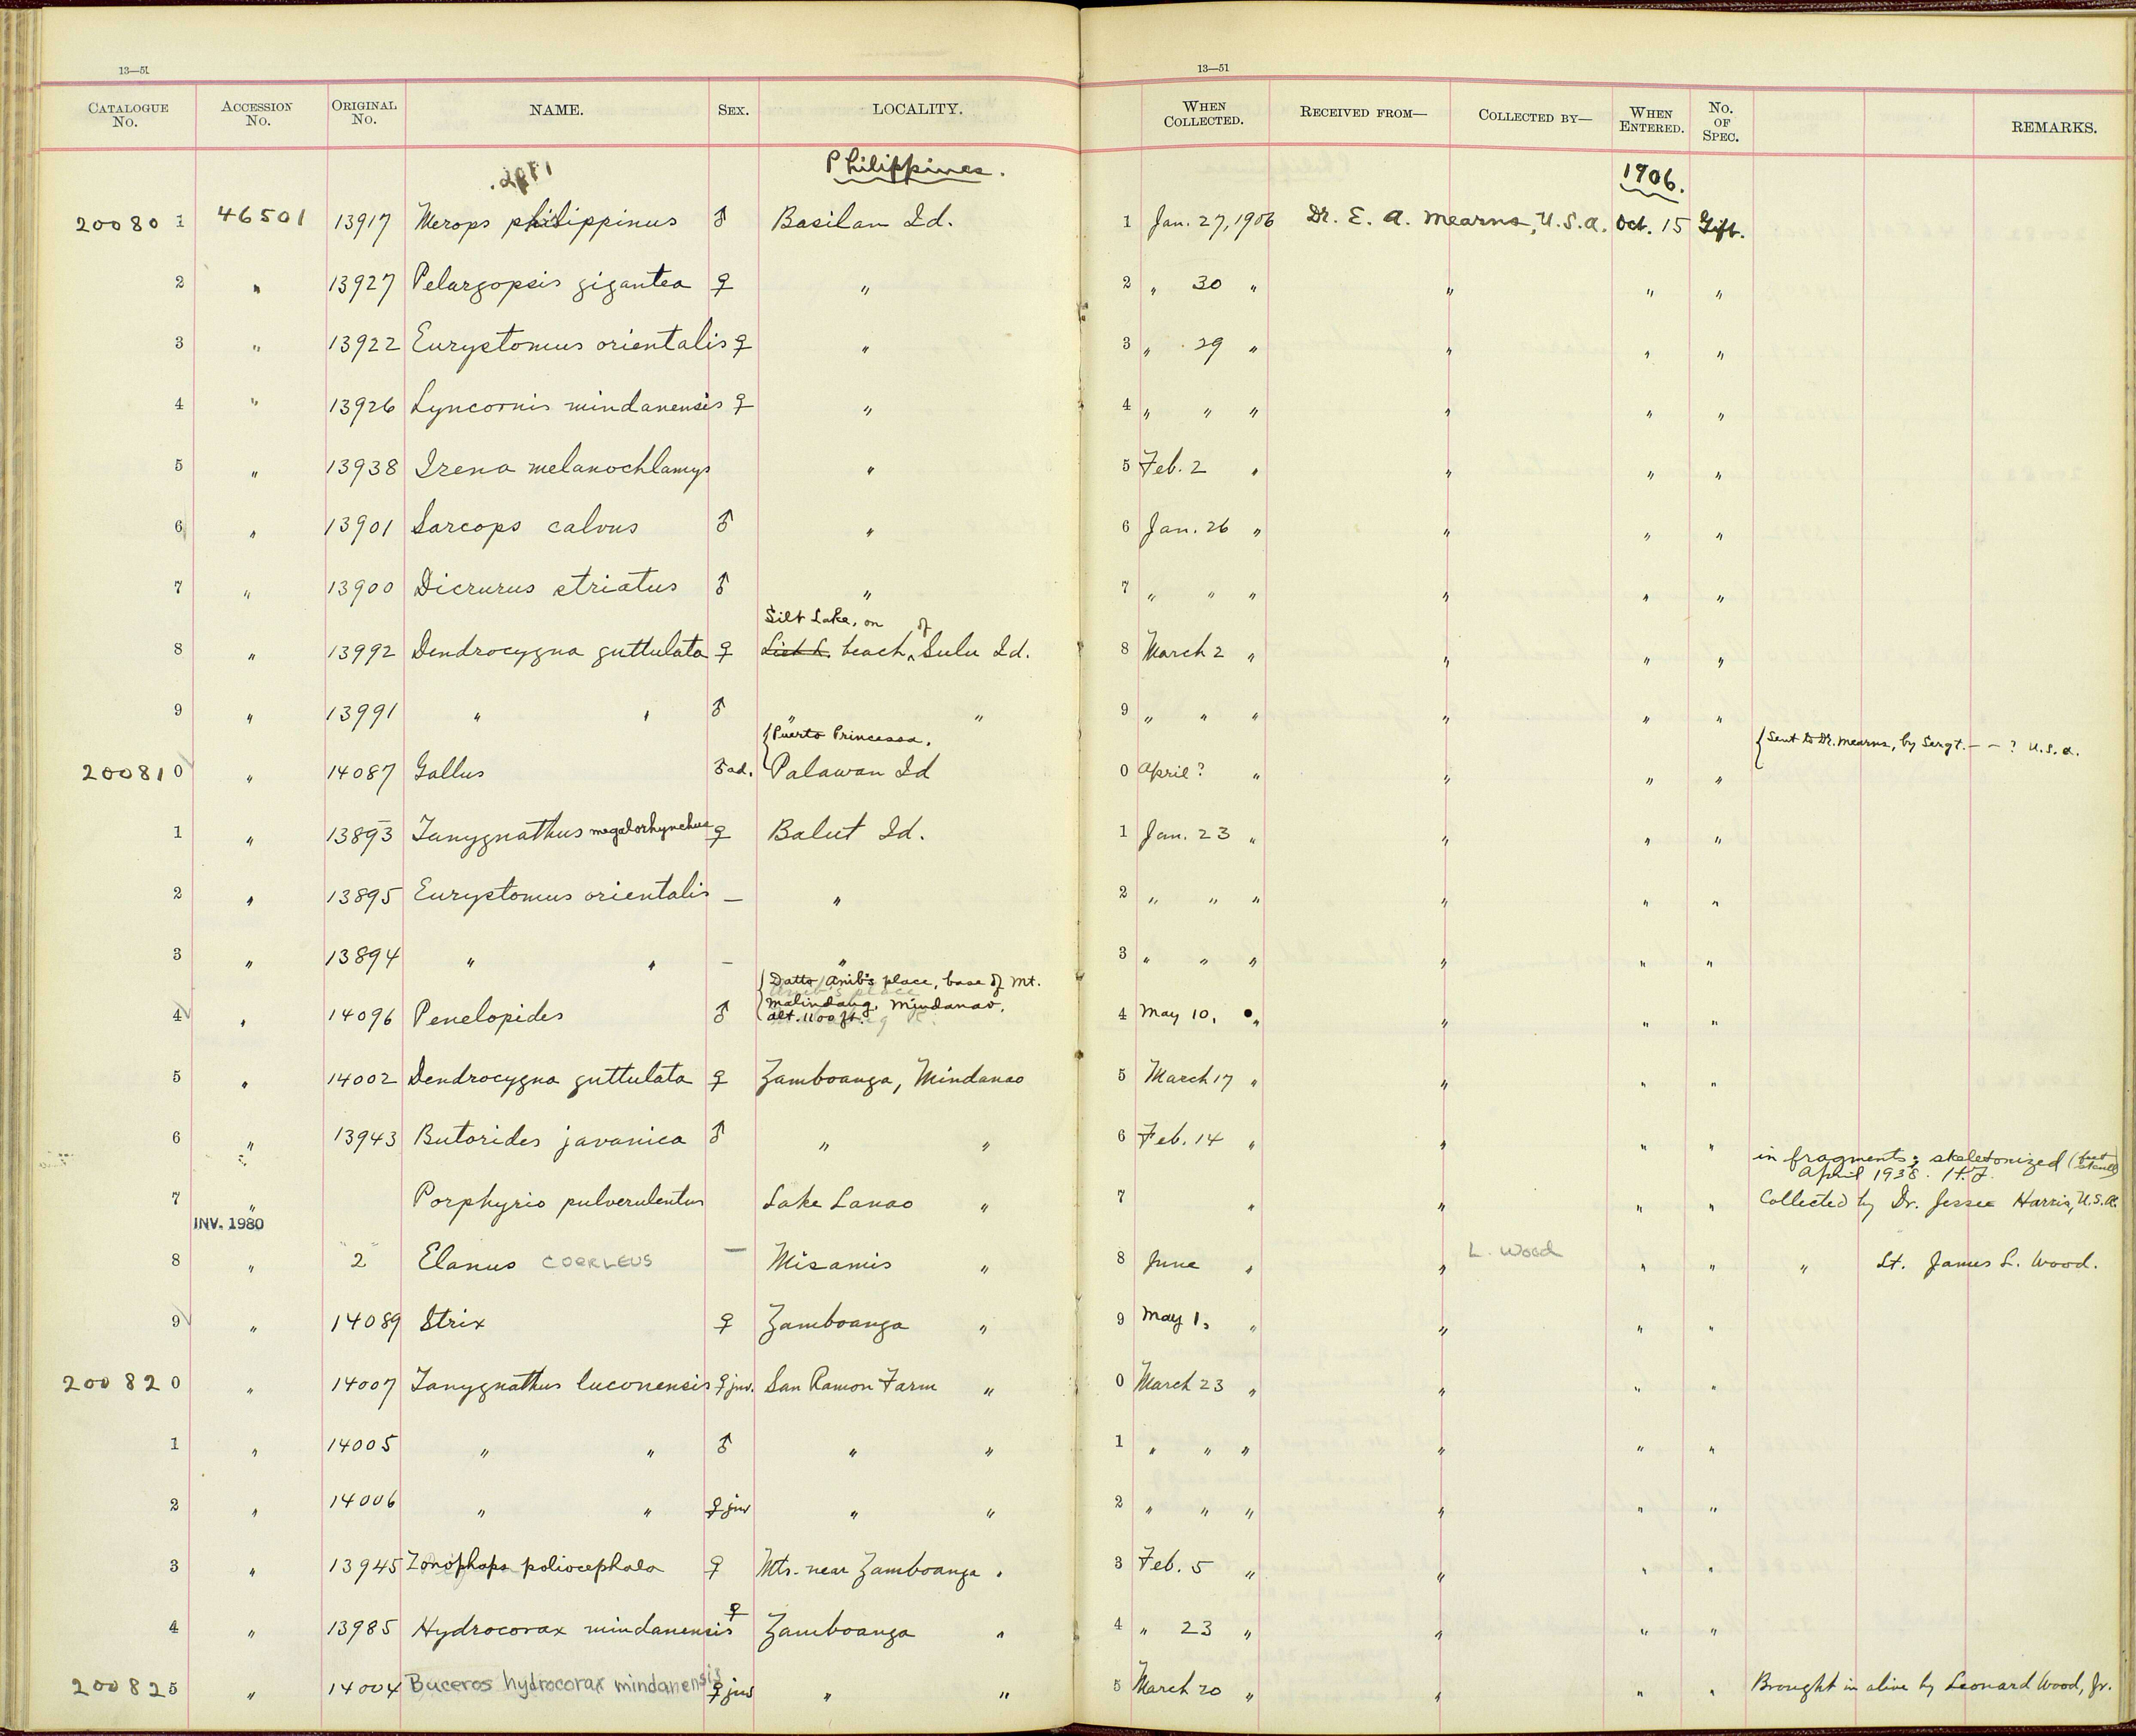 13—51 13—51
CATALOGUE No. ACCESSION No. ORIGINAL No. NAME. SEX. LOCALITY. WHEN COLLECTED. RECEIVED FROM— COLLECTED BY— WHEN ENTERED. No. OF SPEC. REMARKS.
Philippines. 1906.
200801 46501 13917 Merops philippinus ♂ Basilan Id. 1 Jan. 27, 1906 Dr. E. A. Mearns, U.S.A. Oct. 15 Gift.
2 " 13927 Pelargopsis gigantea ♀ " 2 " 30 " " " "
3 " 13922 Eurystomus orientalis ♀ " 3 " 29 " " " "
4 " 13926 Lyncornis mindanensis ♀ " 4 " " " " " "
5 " 13938 Irena melanochlamys " 5 Feb. 2 " " " "
6 " 13901 Sarcops calvus ♂ " 6 Jan. 26 " " " "
7 " 13900 Dicrurus striatus ♂ " 7 " " " " " "
Silt Lake, on of
8 " 13992 Dendrocygna guttulata ♀ beach, Sulu Id. 8 March 2 " " " "
9 " 13991 " " ♂ " " 9 " " " " " "
{Puerto Princessa. {Sent to Dr. Mearns, by Sergt. — — ? U.S.A.
200810 " 14087 Gallus ♂ ad. Palawan Id 0 April? " " " "
1 " 13893 Tanygnathus megalorhynchus ♀ Balut Id. 1 Jan. 23 " " " "
2 " 13895 Eurystomus orientalis — " 2 " " " " " "
3 " 13894 " " — " 3 " " " " " "
{Datto Anib's place, base of Mt.
Malindang, Mindanao,
4 " 14096 Penelopides ♂ alt. 1100 ft. 4 May 10, " " " "
5 " 14002 Dendrocygna guttulata ♀ Zamboanga, Mindanao 5 March 17 " " " "
6 " 13943 Butorides javanica ♂ " " 6 Feb. 14 " " " "
in fragments; skeletonized (feet skull)
April 1938. H.F.
7 " Porphyrio pulverulentus Lake Lanao " 7 " " " " Collected by Dr. Jesse Harris, U.S.A.
INV. 1980
8 " "2" Elanus COERLEUS — Misamis " 8 June " " L. Wood " " " Lt. James L. Wood.
9 " 14089 Strix ♀ Zamboanga " 9 May 1, " " " "
200820 " 14007 Tanygnathus luconensis ♀ juv. San Ramon Farm " 0 March 23 " " " "
1 " 14005 " " ♂ " " 1 " " " " " "
2 " 14006 " " ♀ juv " " 2 " " " " " "
3 " 13945 Zonophaps poliocephala ♀ Mts. near Zamboanga " 3 Feb. 5 " " " "
4 " 13985 Hydrocorax mindanensis ♀ Zamboanga " 4 " 23 " " " "
200825 " 14004 Buceros hydrocorax mindanensis ♀ juv " " 5 March 20 " " " " Brought in alive by Leonard Wood, Jr.